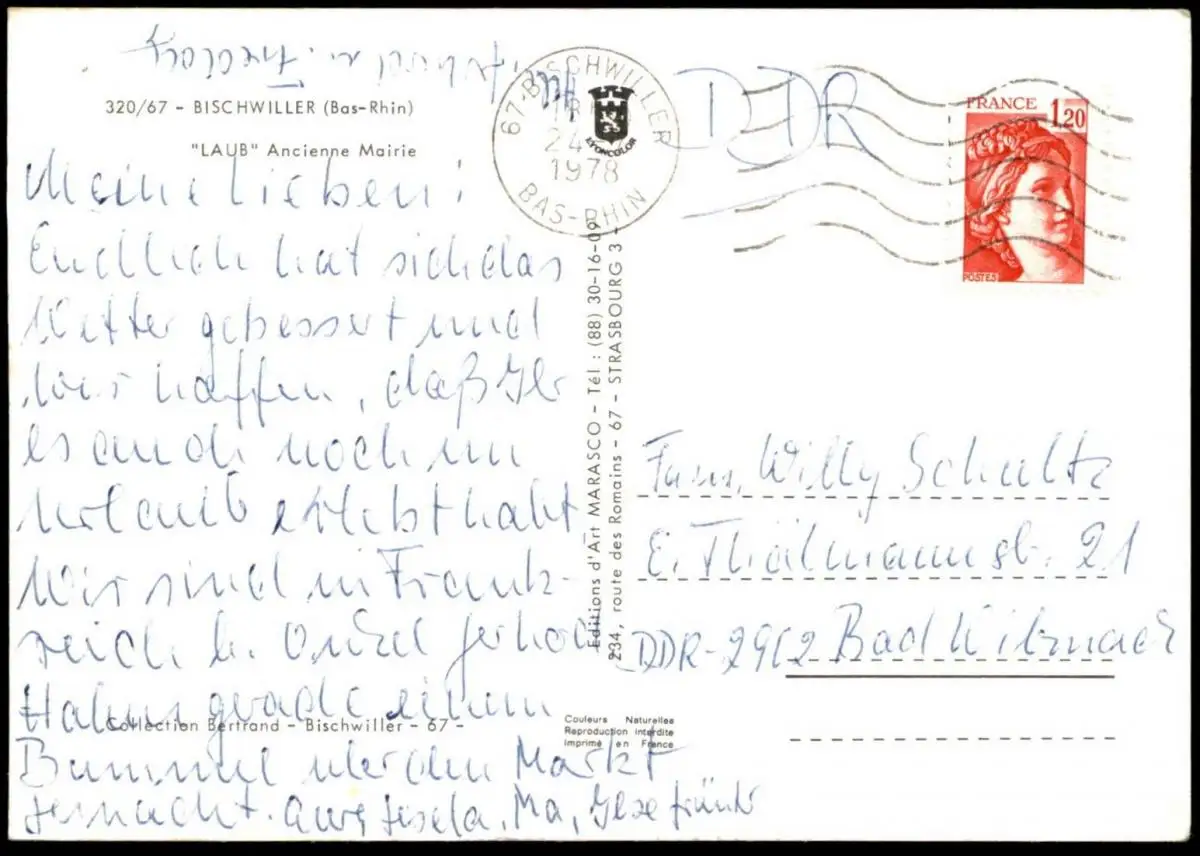 320/67 - BISCHWILLER (Bas-Rhin)
"LAUB" Ancienne Mairie
Meine Lieben!
Endlich hat sich das
Wetter gebessert und
wir hoffen, daß Ihr
es auch noch im
Urlaub erlebt habt
Wir sind in Frank-
reich b. Onkel
Haben gerade einen
Bummel über den Markt
gemacht. Gisela, Ma, Ilse
Collection Bertrand - Bischwiller - 67 -
Couleurs Naturelles
Reproduction interdite
Imprimé en France
Editions d'Art MARASCO - Tél : (88) 30-16-09
234, route des Romains - 67 - STRASBOURG 3 -
67-BISCHWILLER
24
1978
BAS-RHIN
LYONCOLOR
DDR
FRANCE 1,20
POSTES
Fam. Willy Schultz
E. Thälmannstr. 21
DDR-2912 Bad Wilsnack